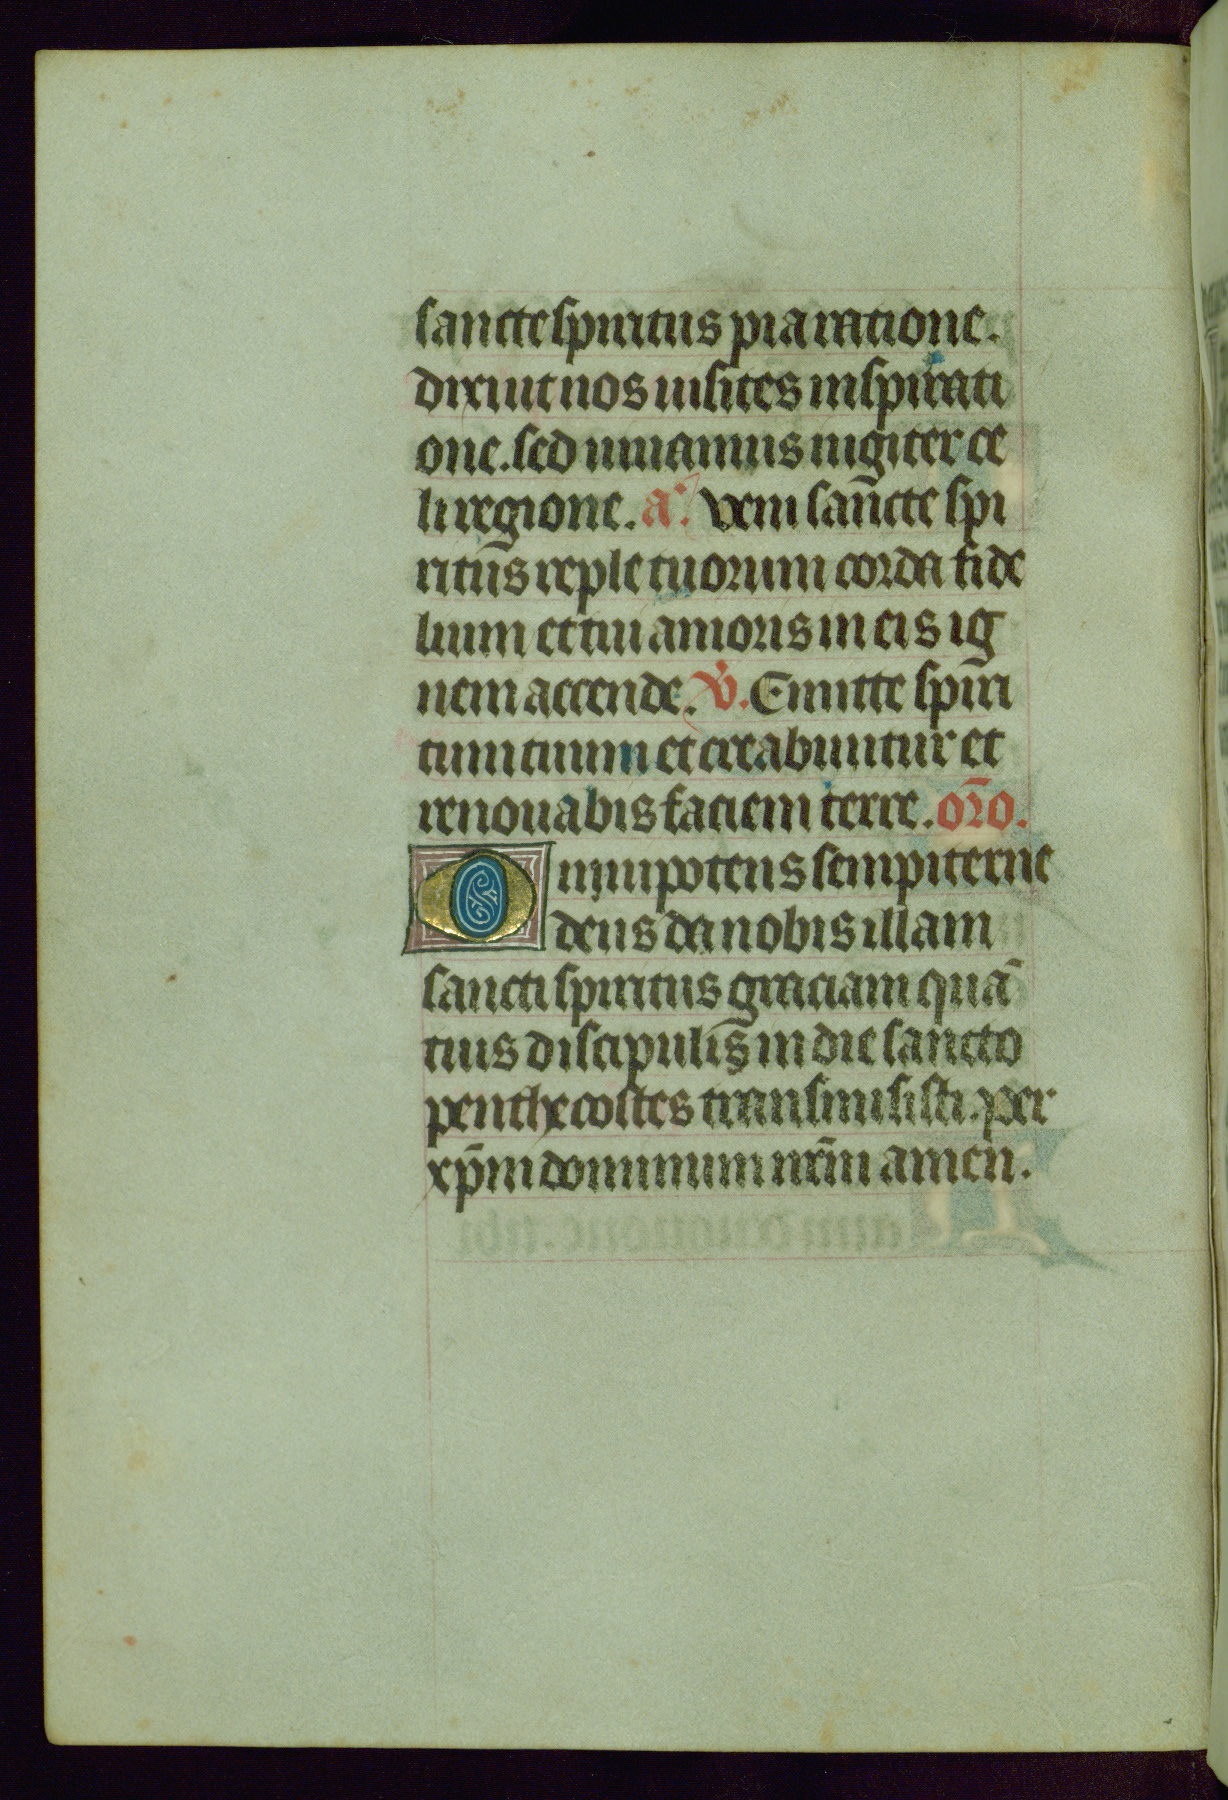 sancte spiritus pia ratione.
dixi ut nos uisites inspirati
one. sed uiuamus iugiter ce
li regione. a᷒. veni san̄cte spi
ritūs reple tuorum corda fide
lium et tui amoris in eis ig
nem accende. v̇. Emitte spīri
tum tuum et creabuntur et
renouabis faciem terre. or̄o.
Omnipotens sempiterne
deus da nobis illam
sancti spiritus graciam quā
tuis discipulis̄ in die sancto
penthecostes transmisisti. per
xp̄m dominum nr̄m amen.